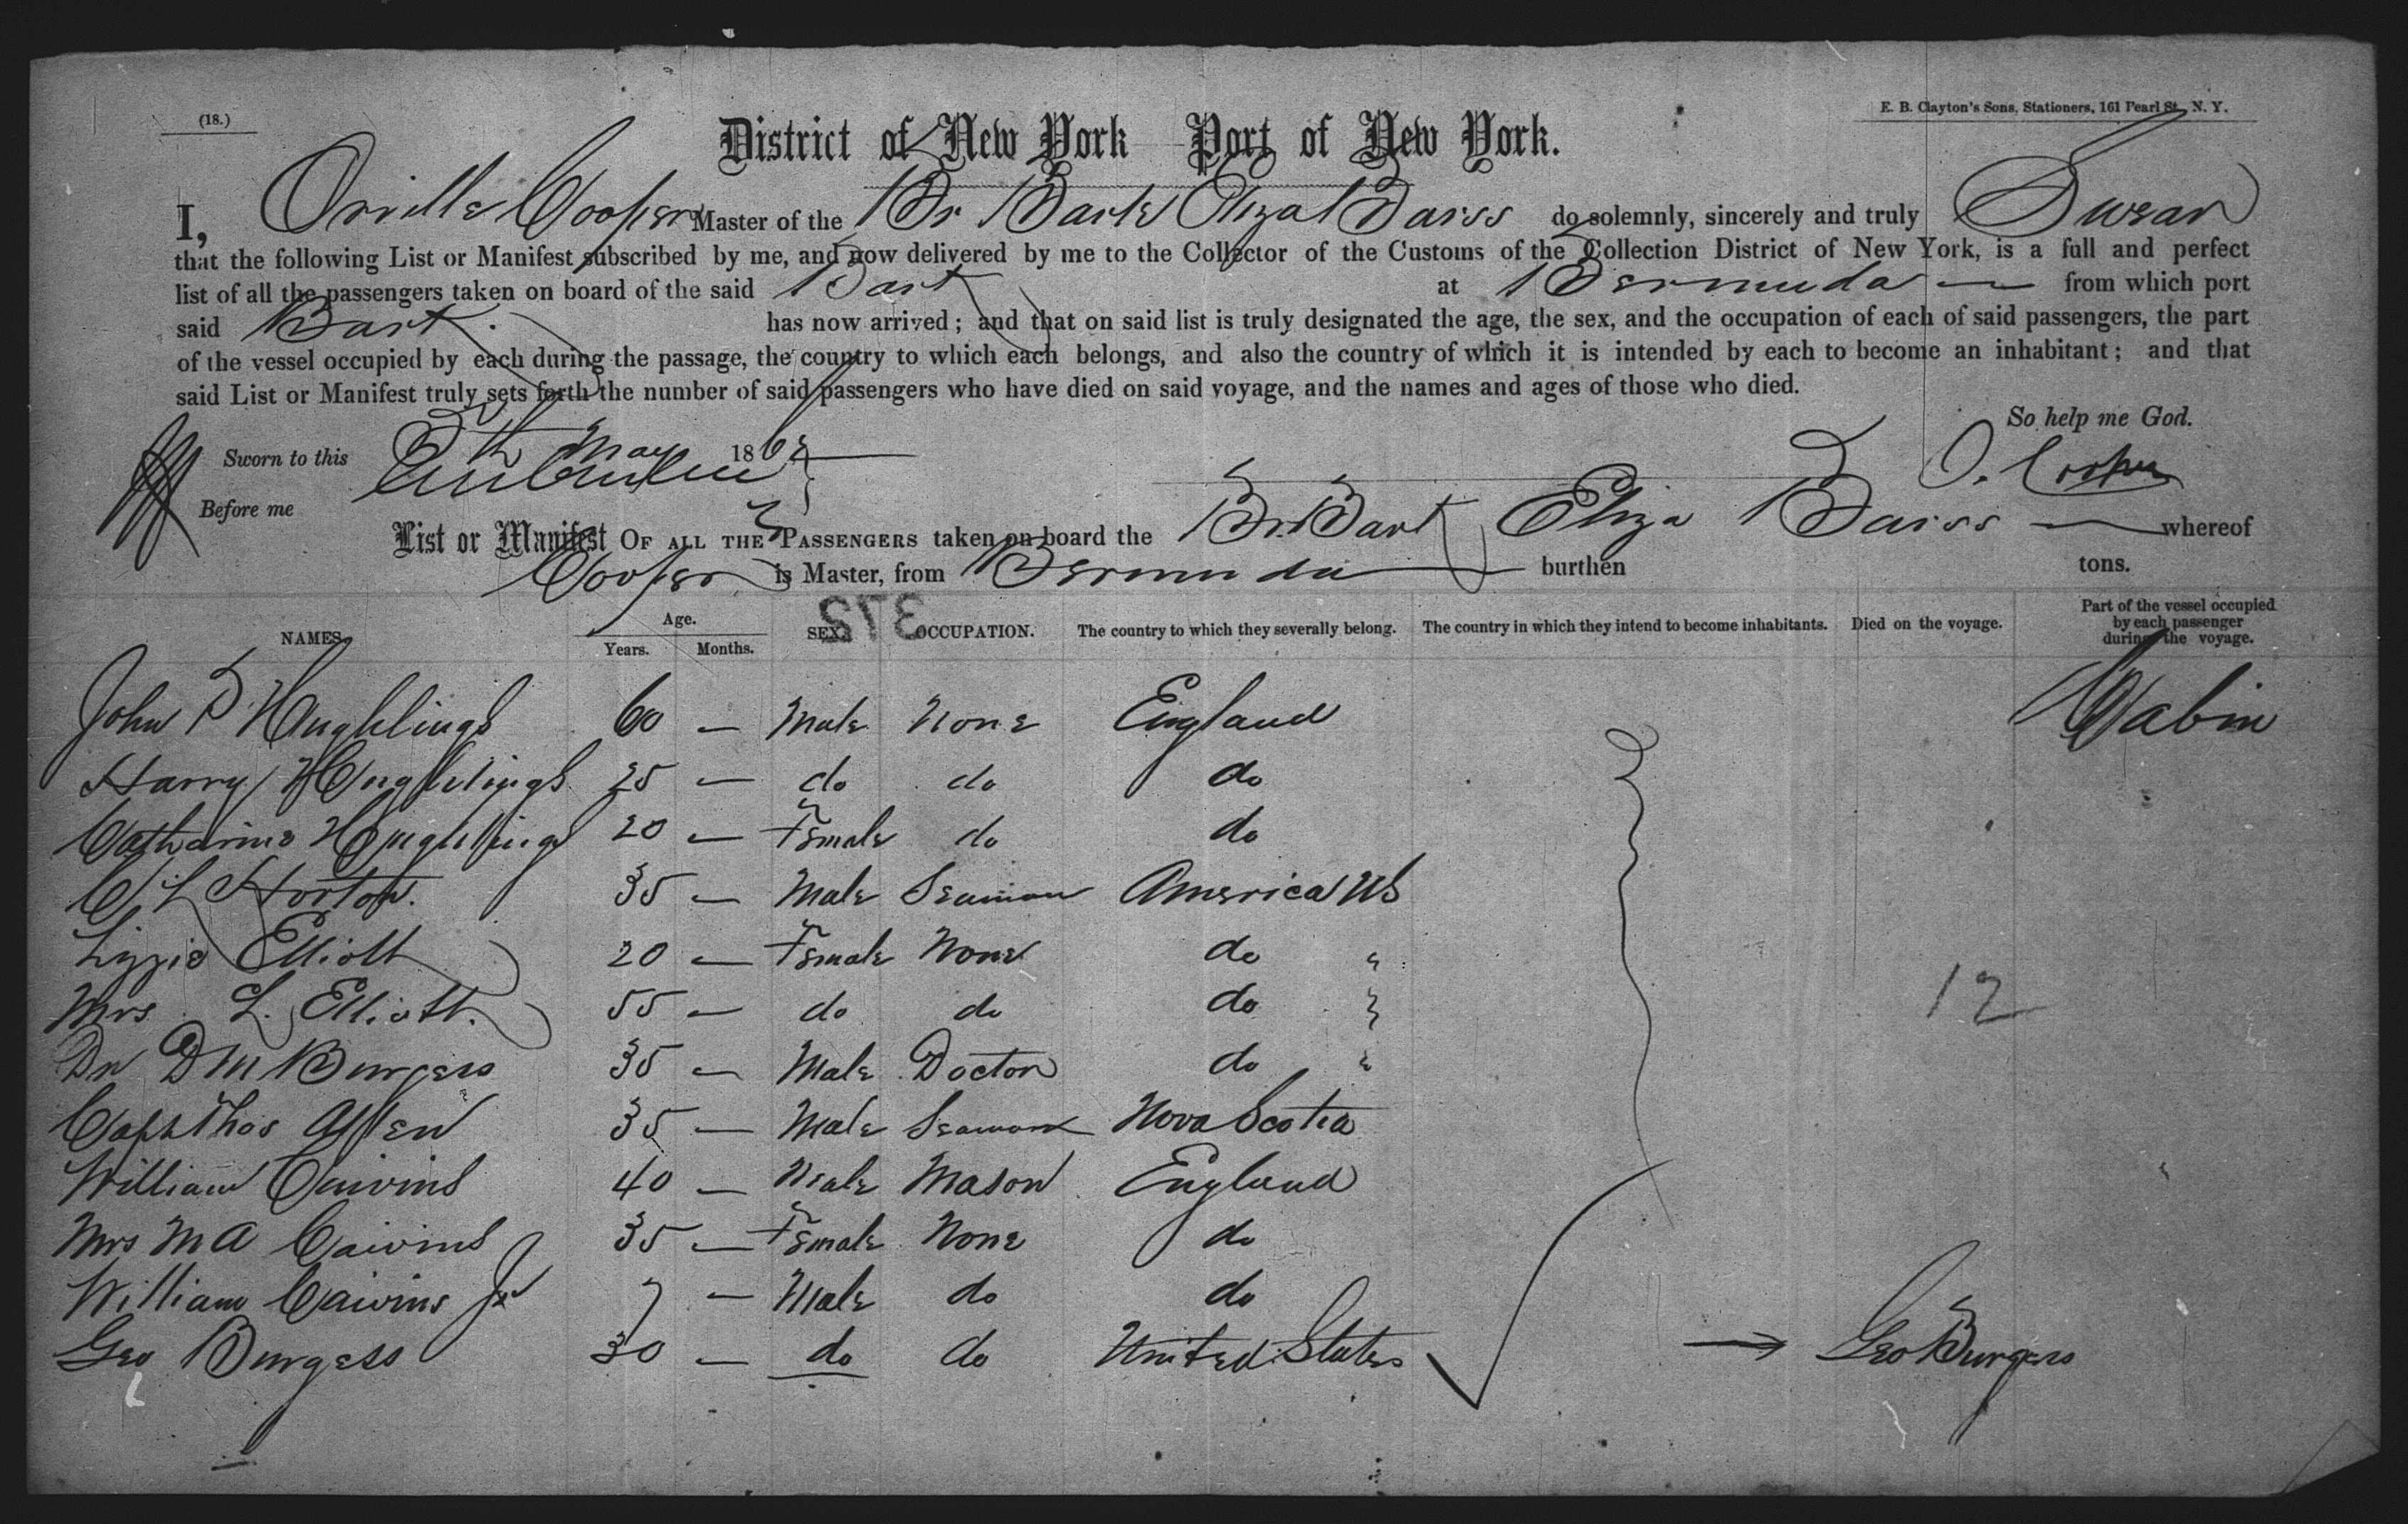 (18.)
E. B. Clayton's Sons, Stationers, 161 Pearl St., N. Y.
District of New York Port of New York.
I, Orville Cooper Master of the Br Bark Eliza Barss do solemnly, sincerely and truly Swear
that the following List or Manifest subscribed by me, and now delivered by me to the Collector of the Customs of the Collection District of New York, is a full and perfect
list of all the passengers taken on board of the said Bark at Bermuda from which port
said Bark has now arrived; and that on said list is truly designated the age, the sex, and the occupation of each of said passengers, the part
of the vessel occupied by each during the passage, the country to which each belongs, and also the country of which it is intended by each to become an inhabitant; and that
said List or Manifest truly sets forth the number of said passengers who have died on said voyage, and the names and ages of those who died.
So help me God.
Sworn to this 8th May 186
O. Cooper
Before me
List or Manifest OF ALL THE PASSENGERS taken on board the Br. Bark Eliza Barss whereof
Cooper is Master, from Bermuda burthen tons.
372
NAMES. Age. Years. Months. SEX. OCCUPATION. The country to which they severally belong. The country in which they intend to become inhabitants. Died on the voyage. Part of the vessel occupied by each passenger during the voyage.
John P Hughlings 60 — Male None England Cabin
Harry Hughlings 25 — do do do
Catharine Hughlings 20 — Female do do
C L Horton. 35 — Male Seaman America US
Lizzie Elliott 20 — Female None do "
Mrs L. Elliott. 55 — do do do "
12
Dr D M Burgess 35 — Male Doctor do "
Capt Thos Allen 35 — Male Seaman Nova Scotia
William Cawins 40 — Male Mason England
Mrs M A Cawins 35 — Female None do
William Cawins Jr 7 — Male do do
Geo Burgess 30 — do do United States → Geo Burgess